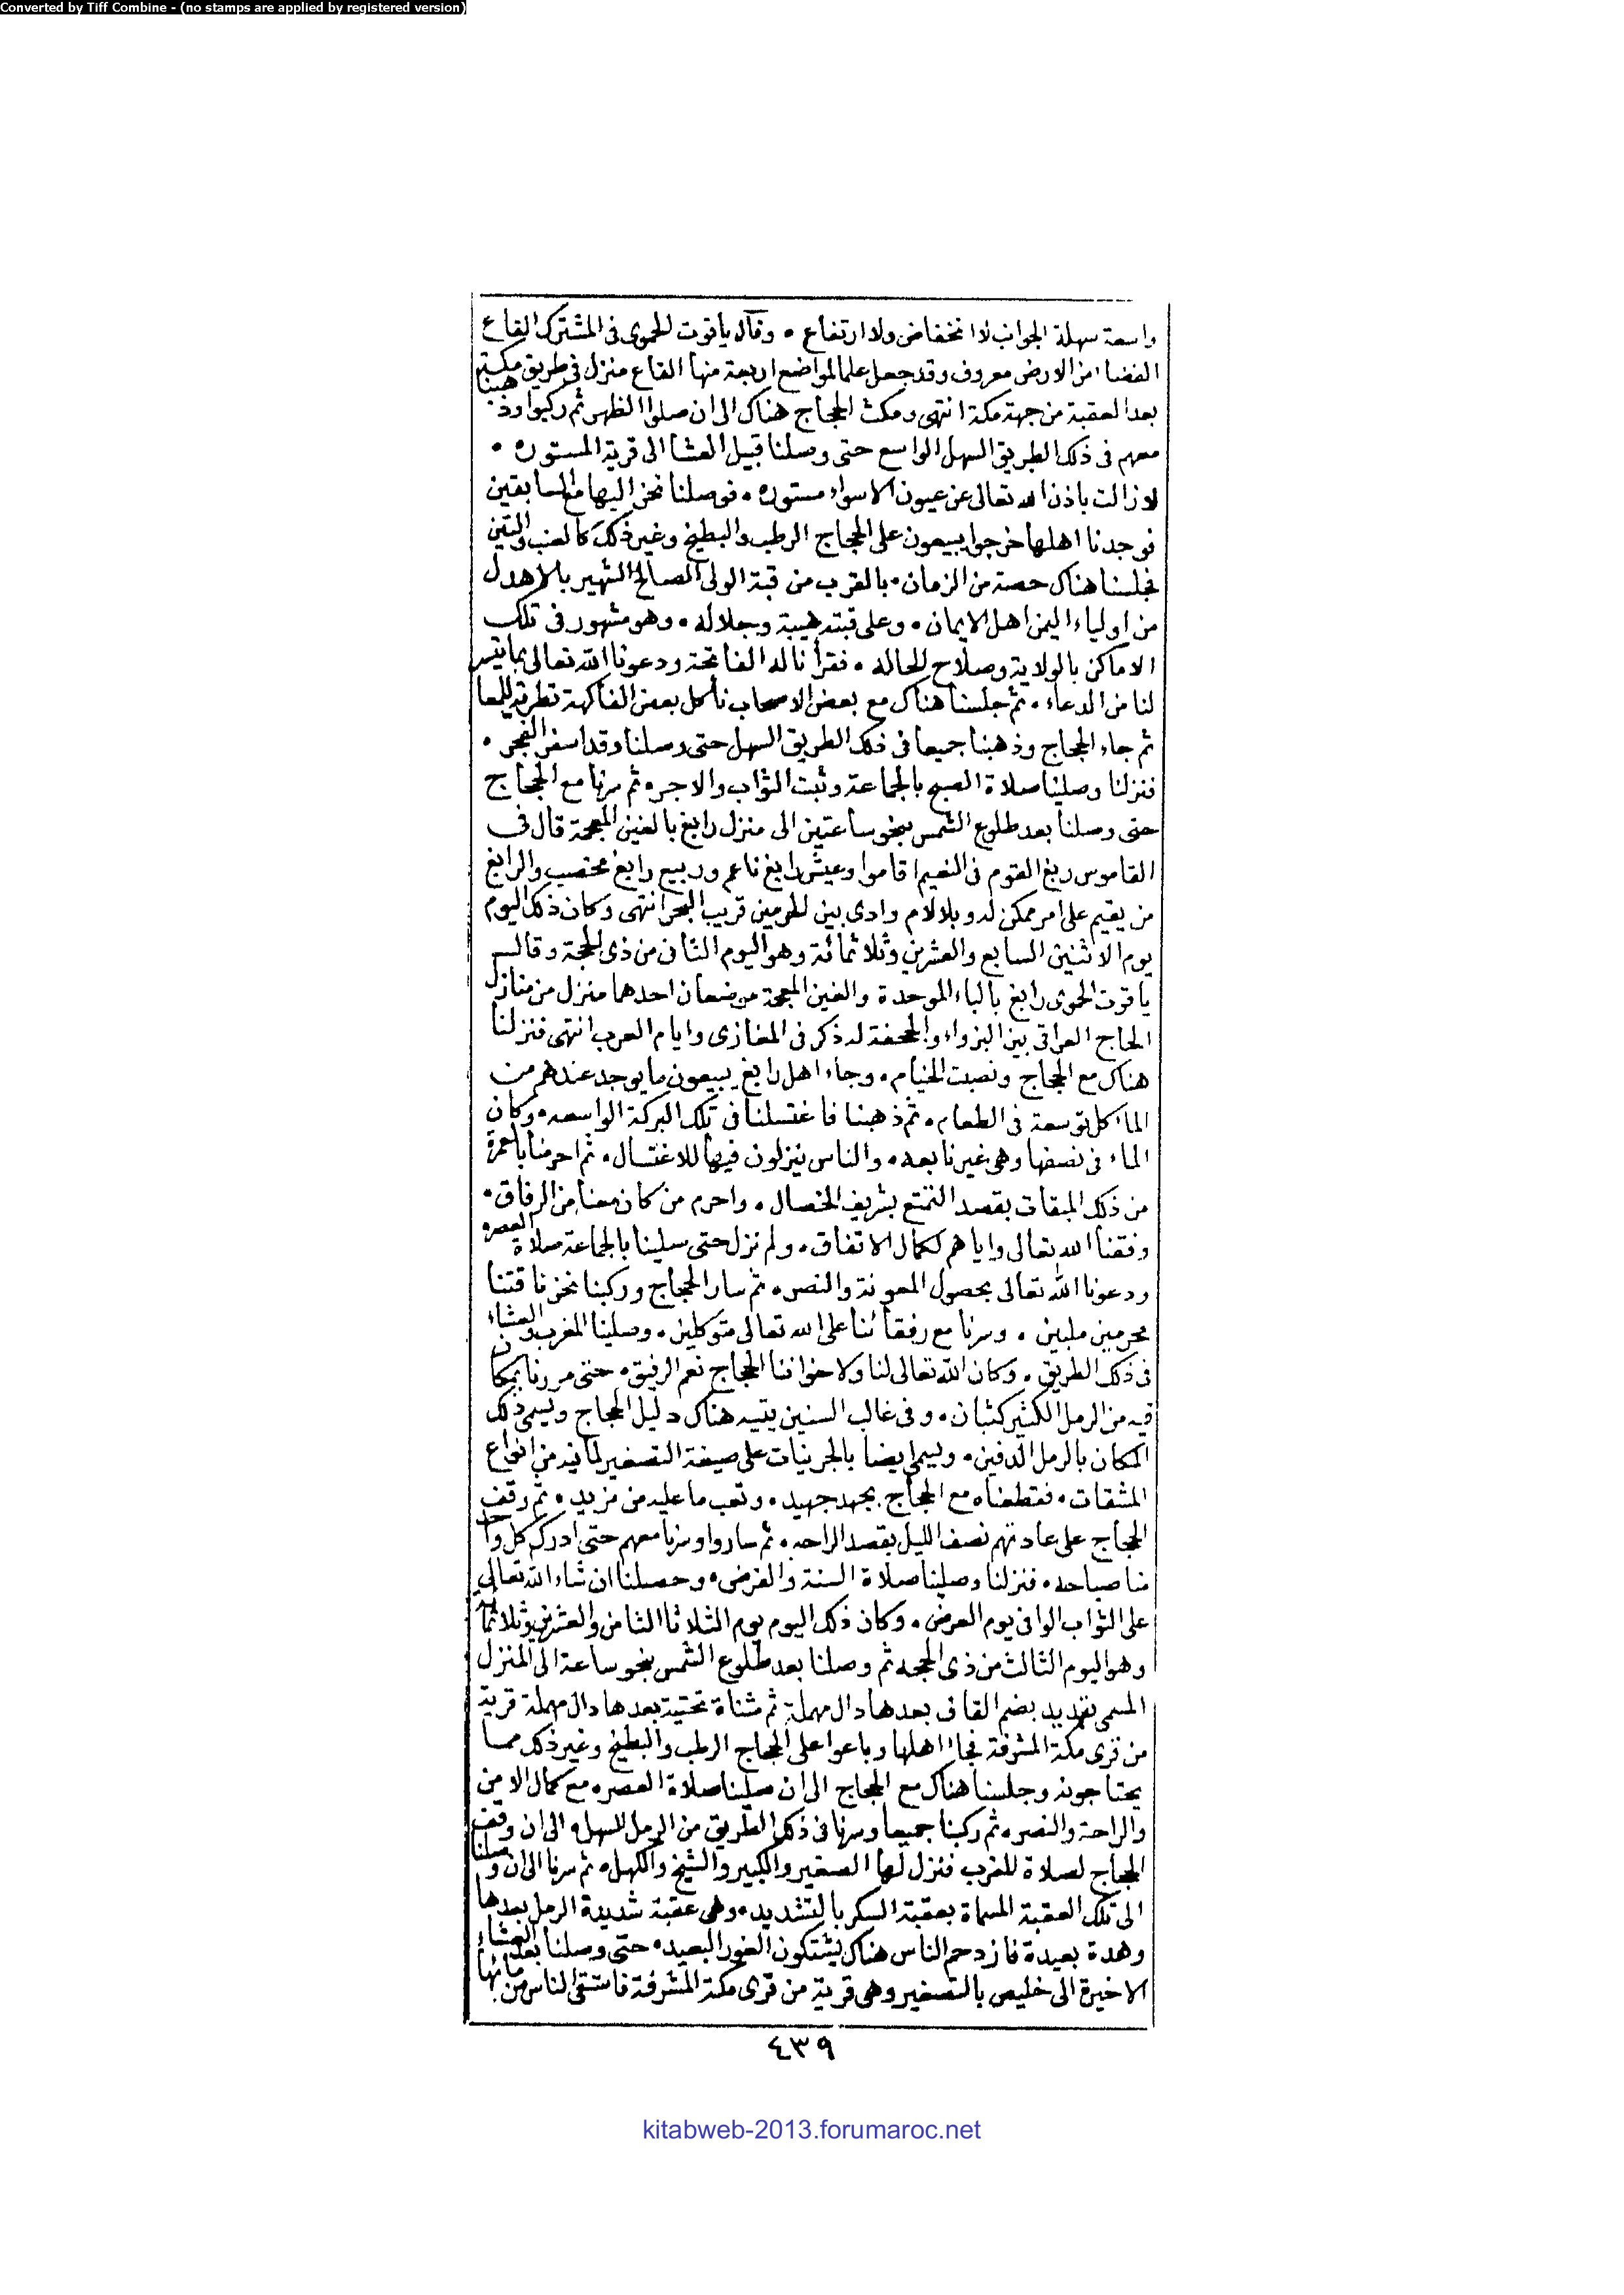 Converted by Tiff Combine - (no stamps are applied by registered version)
واسعة سهلة الجوانب لا انخفاض ولا ارتفاع • وقال ياقوت الحموى فى المشترك القاع
الفضاء من الارض معروف وقد جعل علما لمواضع اربعة منها القاع منزل فى طريق مكة
بعد العقبة من جهة مكة انتهى ومكث الحجاج هناك الى ان صلوا الظهر ثم ركبوا وذهبنا
معهم فى ذلك الطريق السهل الواسع حتى وصلنا قبيل العشا الى قرية المستوره •
لازالت باذن الله تعالى عن عيون الاسواء مستوره • فوصلنا نحن اليها مع السابقين
فوجدنا اهلها خرجوا يبيعون على الحجاج الرطب والبطيخ وغير ذلك كالعنب والتين
فجلسنا هناك حصة من الزمان • بالقرب من قبة الولى الصالح الشهير بالاهدل
من اولياء اليمن اهل الايمان • وعلى قبته هيبة وجلاله • وهو مشهور فى تلك
الاماكن بالولاية وصلاح الحاله • فقرأنا له الفاتحة ودعونا الله تعالى بما تيسر
لنا من الدعاء • ثم جلسنا هناك مع بعض الاصحاب نأكل بعض الفاكهة
ثم جاء الحجاج وذهبنا جميعا فى ذلك الطريق السهل حتى وصلنا وقد اسفر الفجر •
فنزلنا وصلينا صلاة الصبح بالجماعة وثبت الثواب والاجر • ثم سرنا مع الحجاج
حتى وصلنا بعد طلوع الشمس بنحو ساعتين الى منزل رابغ بالغين المعجمة قال فى
القاموس ربغ القوم فى النعيم اقاموا وعيش رابغ ناعم وربيع رابغ مخصب والرابغ
من يقيم على امر ممكن له وبلا لام وادى بين الحرمين قريب البحر انتهى وكان ذلك اليوم
يوم الاثنين السابع والعشرين وثلاثمائة وهو اليوم الثانى من ذى الحجة وقال
ياقوت الحموى رابغ بالباء الموحدة والغين المعجمة موضعان احدهما منزل من منازل
الحاج العراقى بين البزواء والجحفة له ذكر فى المغازى وايام العرب انتهى فنزلنا
هناك مع الحجاج ونصبت الخيام • وجاء اهل رابغ يبيعون ما يوجد عندهم من
المآكل توسعة فى الطعام • ثم ذهبنا فاغتسلنا فى تلك البركة الواسعه • وكان
الماء فى نصفها وهى غير نابعه • والناس ينزلون فيها للاغتسال • ثم احرمنا بالعمرة
من ذلك الميقات بقصد التمتع بشريف الخصال • واحرم من كان معنا من الرفاق •
وفقنا الله تعالى واياهم لكمال الاتفاق • ولم نزل حتى صلينا بالجماعة صلاة العصره
ودعونا الله تعالى بحصول المعونة والنصر • ثم سار الحجاج وركبنا نحن ناقتنا
محرمين ملبين • وسرنا مع رفقائنا على الله تعالى متوكلين • وصلينا المغرب والعشاء
فى ذلك الطريق • وكان الله تعالى لنا ولاخواننا الحجاج نعم الرفيق • حتى مررنا بمكان
فيه من الرمل الكثير كثبان • وفى غالب السنين يتيه هناك دليل الحجاج ويسمى ذلك
المكان بالرمل الدفين • ويسمى ايضا بالجرينات على صيغة التصغير لما فيه من انواع
المشقات • فقطعناه مع الحجاج بجهد جهيد • وتعب ما عليه من مزيد • ثم وقف
الحجاج على عادتهم نصف الليل بقصد الراحه • ثم ساروا وسرنا معهم حتى ادرك كل واحد
منا صباحه • فنزلنا وصلينا صلاة السنة والفرض • وحصلنا ان شاء الله تعالى
على الثواب الوافى يوم العرض • وكان ذلك اليوم يوم الثلاثا الثامن والعشرين وثلاثمائة
وهو اليوم الثالث من ذى الحجه ثم وصلنا بعد طلوع الشمس بنحو ساعة الى المنزل
المسمى بقديد بضم القاف بعدها دال مهملة ثم مثناة تحتية بعدها دال مهملة قرية
من قرى مكة المشرفة فجاء اهلها وباعوا على الحجاج الرطب والبطيخ وغير ذلك مما
يحتاجونه وجلسنا هناك مع الحجاج الى ان صلينا صلاة العصر • مع كمال الامن
والراحة والنصر • ثم ركبنا جميعا وسرنا فى ذلك الطريق من الرمل السهل • الى ان وقف
الحجاج لصلاة المغرب فنزل لها الصغير والكبير والشيخ والكهل • ثم سرنا الى ان وصلنا
الى تلك العقبة المسماة بعقبة السكر بالتشديد • وهى عقبة شديدة الرمل بعدها
وهدة بعيدة فازدحم الناس هناك يشتكون الغور البعيد • حتى وصلنا بعد العشاء
الاخيرة الى خليص بالتصغير وهى قرية من قرى مكة المشرفة فاستقى الناس من مائها
٤٣٩
kitabweb-2013.forumaroc.net